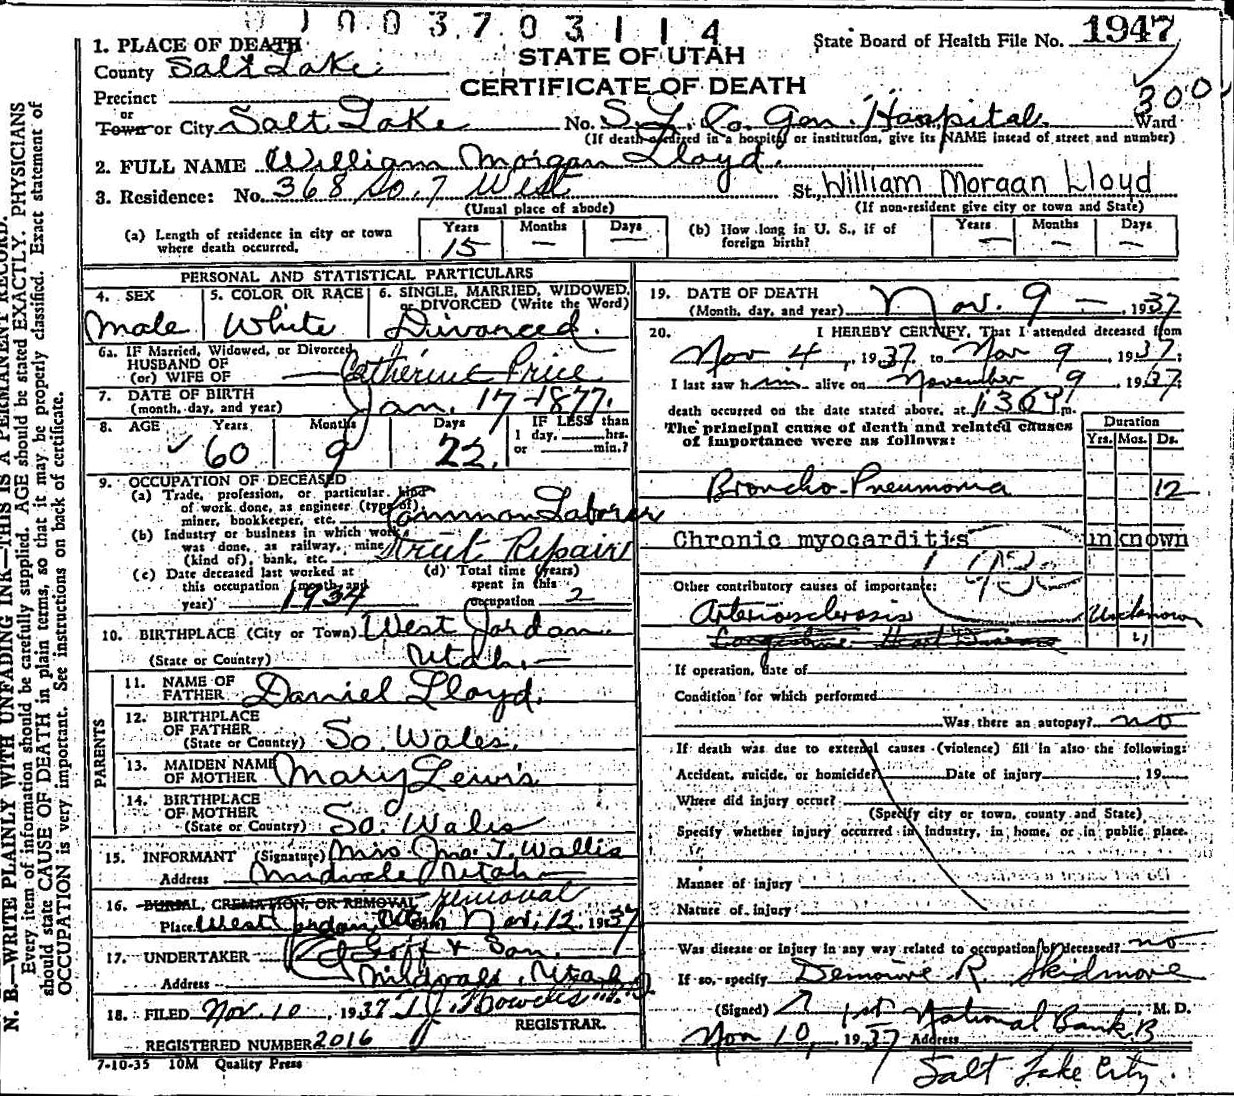 1003703114
1. PLACE OF DEATH
County Salt Lake
Precinct
or
Town or City Salt Lake No. S. L. Co. Gen. Hospital St. Ward
STATE OF UTAH
CERTIFICATE OF DEATH
State Board of Health File No. 1947
300
(If death occurred in a hospital or institution, give its NAME instead of street and number)
2. FULL NAME William Morgan Lloyd.
3. Residence: No. 368 So. 7 West St. William Morgan Lloyd
(Usual place of abode) (If non-resident give city or town and State)
(a) Length of residence in city or town where death occurred. Years 15 Months — Days —
(b) How long in U. S., if of foreign birth? Years — Months — Days —
PERSONAL AND STATISTICAL PARTICULARS
4. SEX Male
5. COLOR OR RACE White
6. SINGLE, MARRIED, WIDOWED, or DIVORCED (Write the Word) Divorced.
6a. IF Married, Widowed, or Divorced
HUSBAND OF
(or) WIFE OF Catherine Price
7. DATE OF BIRTH
(month, day, and year) Jan. 17-1877.
8. AGE Years 60 Months 9 Days 22.
IF LESS than
1 day, hrs.
or min.?
9. OCCUPATION OF DECEASED
(a) Trade, profession, or particular kind
of work done, as engineer (type of),
miner, bookkeeper, etc. Common Laborer
(b) Industry or business in which work
was done, as railway, mine
(kind of), bank, etc. Street Repairs
(c) Date deceased last worked at
this occupation (month and
year) 1934
(d) Total time (years)
spent in this
occupation 2
10. BIRTHPLACE (City or Town) West Jordan
(State or Country) Utah.—
PARENTS
11. NAME OF
FATHER Daniel Lloyd.
12. BIRTHPLACE
OF FATHER
(State or Country) So. Wales.
13. MAIDEN NAME
OF MOTHER Mary Lewis
14. BIRTHPLACE
OF MOTHER
(State or Country) So. Wales
15. INFORMANT (Signature) Mrs Jno. T. Wallis
Address Midvale Utah
16. BURIAL, CREMATION, OR REMOVAL removal
Place West Jordan, Utah Nov. 12. 1937
17. UNDERTAKER Goff & Son.
Address Midvale, Utah
18. FILED Nov. 10, 1937
REGISTRAR.
REGISTERED NUMBER 2016
7-10-35 10M Quality Press
19. DATE OF DEATH
(Month, day, and year) Nov. 9 — 1937
20. I HEREBY CERTIFY, That I attended deceased from
Nov 4, 1937. to Nov 9, 1937.
I last saw him alive on November 9, 1937;
death occurred on the date stated above, at 1:30 m.
The principal cause of death and related causes
of importance were as follows:
Duration
Yrs. Mos. Ds.
Broncho-Pneumonia 12
Chronic myocarditis unknown
Other contributory causes of importance:
Arteriosclerosis Unknown
Congestive Heart Disease "
If operation, date of
Condition for which performed
Was there an autopsy? no
If death was due to external causes (violence) fill in also the following:
Accident, suicide, or homicide? Date of injury 19
Where did injury occur?
(Specify city or town, county and State)
Specify whether injury occurred in industry, in home, or in public place.
Manner of injury
Nature of injury
Was disease or injury in any way related to occupation of deceased? no
If so, specify
Demoine R. Skidmore
(Signed) M. D.
1st National Bank B
Nov 10, 1937 Address
Salt Lake City.
N. B.—WRITE PLAINLY WITH UNFADING INK—THIS IS A PERMANENT RECORD.
Every item of information should be carefully supplied. AGE should be stated EXACTLY. PHYSICIANS
should state CAUSE OF DEATH in plain terms, so that it may be properly classified. Exact statement of
OCCUPATION is very important. See instructions on back of certificate.